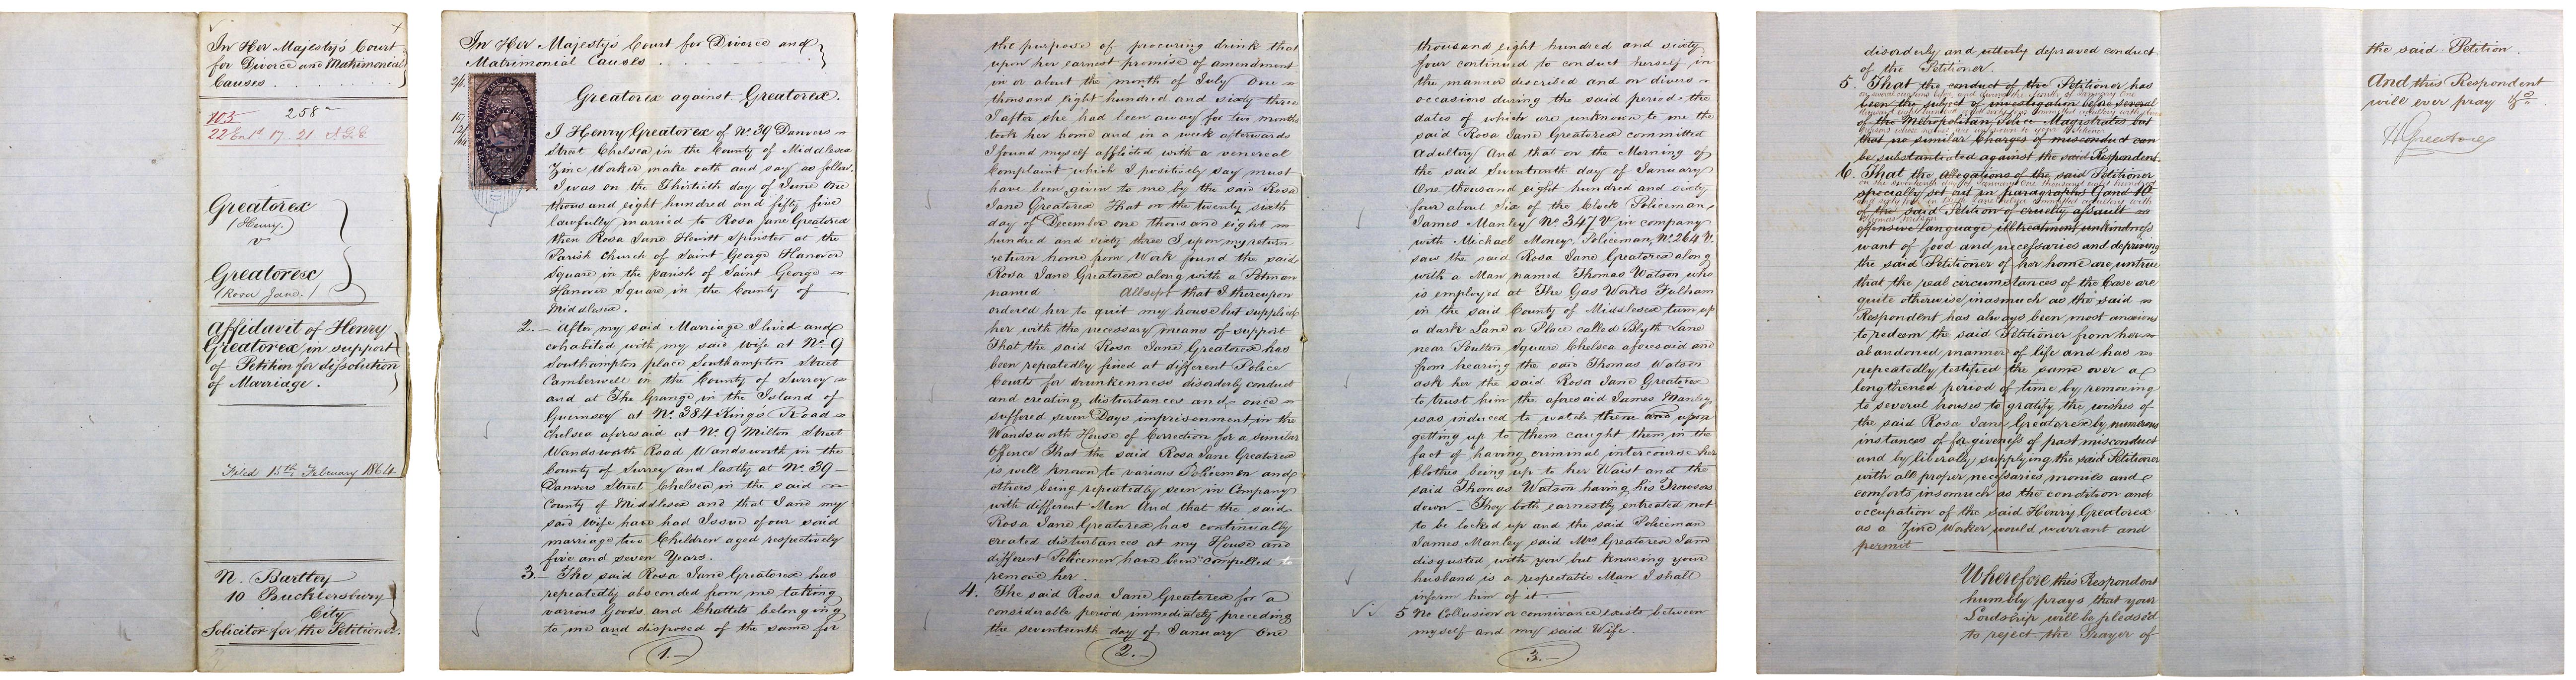 In Her Majesty's Court
for Divorce and Matrimonial
Causes
103
258
22 17. 21
Greatorex
(Henry)
v
Greatorex
(Rosa Jane.)
Affidavit of Henry
Greatorex in support
of Petition for dissolution
of Marriage.
Filed 15th February 1864
N. Bartley
10 Bucklersbury
City
Solicitor for the Petitioner.
In Her Majesty's Court for Divorce and
Matrimonial Causes.
Greatorex against Greatorex.
I Henry Greatorex of No. 39 Danvers
Street Chelsea in the County of Middlesex
Zinc Worker make oath and say as follows.
I was on the Thirtieth day of June One
thousand eight hundred and fifty five
lawfully married to Rosa Jane Greatorex
then Rosa Jane Hewitt Spinster at the
Parish Church of Saint George Hanover
Square in the parish of Saint George
Hanover Square in the County of
Middlesex.
2. After my said Marriage I lived and
cohabited with my said Wife at No. 9
Southampton place Southampton Street
Camberwell in the County of Surrey
and at The Grange in the Island of
Guernsey at No. 384 Kings Road
Chelsea aforesaid at No. 9 Milton Street
Wandsworth Road Wandsworth in the
County of Surrey and lastly at No. 39
Danvers Street Chelsea in the said
County of Middlesex and that I and my
said Wife have had Issue of our said
marriage two Children aged respectively
five and seven Years.
3. The said Rosa Jane Greatorex has
repeatedly absconded from me taking
various Goods and Chattels belonging
to me and disposed of the same for
1.
the purpose of procuring drink that
upon her earnest promise of amendment
in or about the month of July One
thousand eight hundred and sixty three
I after she had been away for two months
took her home and in a week afterwards
I found myself afflicted with a venereal
Complaint which I positively say must
have been given to me by the said Rosa
Jane Greatorex That on the twenty sixth
day of December one thousand eight
hundred and sixty three I upon my return
return home from Work found the said
Rosa Jane Greatorex along with a Potman
named Allsept that I thereupon
ordered her to quit my house but supplied
her with the necessary means of support
That the said Rosa Jane Greatorex has
been repeatedly fined at different Police
Courts for drunkenness disorderly conduct
and creating disturbances and once
suffered seven Days imprisonment in the
Wandsworth House of Correction for a similar
Offence That the said Rosa Jane Greatorex
is well known to various Policemen and
others being repeatedly seen in Company
with different Men And that the said
Rosa Jane Greatorex has continually
created disturbances at my House and
different Policemen have been compelled to
remove her.
4. The said Rosa Jane Greatorex for a
considerable period immediately preceding
the seventeenth day of January One
2.
thousand eight hundred and sixty
four continued to conduct herself in
the manner described and on divers
occasions during the said period the
dates of which are unknown to me the
said Rosa Jane Greatorex committed
adultery And that on the Morning of
the said Seventeenth day of January
One thousand eight hundred and sixty
four about Six of the Clock Policeman
James Manley No. 347 V in company
with Michael Money, Policeman, No. 264 V.
saw the said Rosa Jane Greatorex along
with a Man named Thomas Watson who
is employed at The Gas Works Fulham
in the said County of Middlesex turn up
a dark Land or Place called Blyth Lane
near Poulton Square Chelsea aforesaid and
from hearing the said Thomas Watson
ask her the said Rosa Jane Greatorex
to trust him the aforesaid James Manley
was induced to watch them and upon
getting up to them caught them in the
fact of having criminal intercourse her
Clothes being up to her Waist and the
said Thomas Watson having his Trowsers
down - They both earnestly entreated not
to be locked up and the said Policeman
James Manley said Mrs Greatorex I am
disgusted with you but knowing your
husband is a respectable Man I shall
inform him of it.
5 No Collusion or connivance exists between
myself and my said Wife.
3.
disorderly and utterly depraved conduct
of the Petitioner.
5. That the conduct of the Petitioner has
been the subject of investigation before several
of the Metropolitan Police Magistrates but
that no similar Charges of misconduct can
be substantiated against the said Respondent.
6. That the allegations of the said Petitioner
specially set out in paragraphs 9 and 10
of the said Petition of cruelty assault
offensive language illtreatment unkindness
want of food and necessaries and depriving
the said Petitioner of her home are untrue
that the real circumstances of the Case are
quite otherwise inasmuch as the said
Respondent has always been most anxious
to redeem the said Petitioner from her
abandoned manner of life and has
repeatedly testified the same over a
lengthened period of time by removing
to several houses to gratify the wishes of
the said Rosa Jane Greatorex by numerous
instances of forgiveness of past misconduct
and by liberally supplying the said Petitioner
with all proper necessaries monies and
comforts insomuch as the condition and
occupation of the said Henry Greatorex
as a Zinc Worker would warrant and
permit
Wherefore this Respondent
humbly prays that your
Lordship will be pleased
to reject the Prayer of
the said Petition.
And this Respondent
will ever pray &c.
H Greatorex